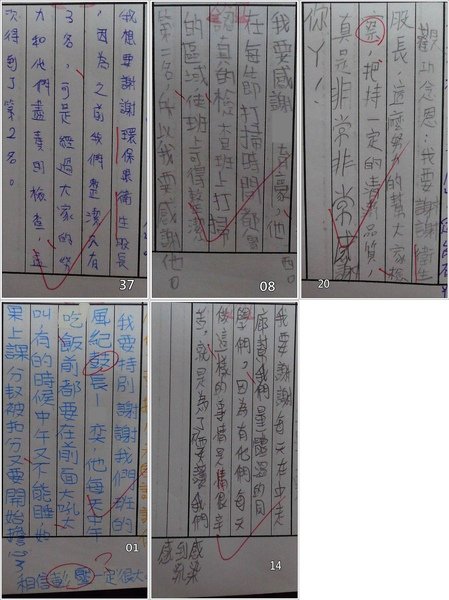 我想要謝謝環保果衛生股長
，因為之前我們整潔只有
3名，可是經過大家的努
力和他們盡責的檢查，盡
次得到了第2名。
37
我要感謝 豪，他
在每節打掃時間都會
認真的檢查班上打掃
的區域使班上可得整潔
第一名所以我要感謝他。
08
觀功念恩，我要謝謝衛生
股長，這麼努力的幫大家檢
察，把持一定的清潔品質，
真是非常非常感謝
你ㄚ！
20
我要特別謝謝我們班的
風紀股長－奕，他每天中午
吃飯前都要在前面大吼大
叫有的時候中午又不能睡
果上課分數被扣分要開始擔心
01
相信彭 一定很大
我要謝謝每天在中走
廊幫我們量體溫的同
學們，因為有他們每天
做這樣的事情是很辛
苦，就是為了不要讓我們
感到感染
14